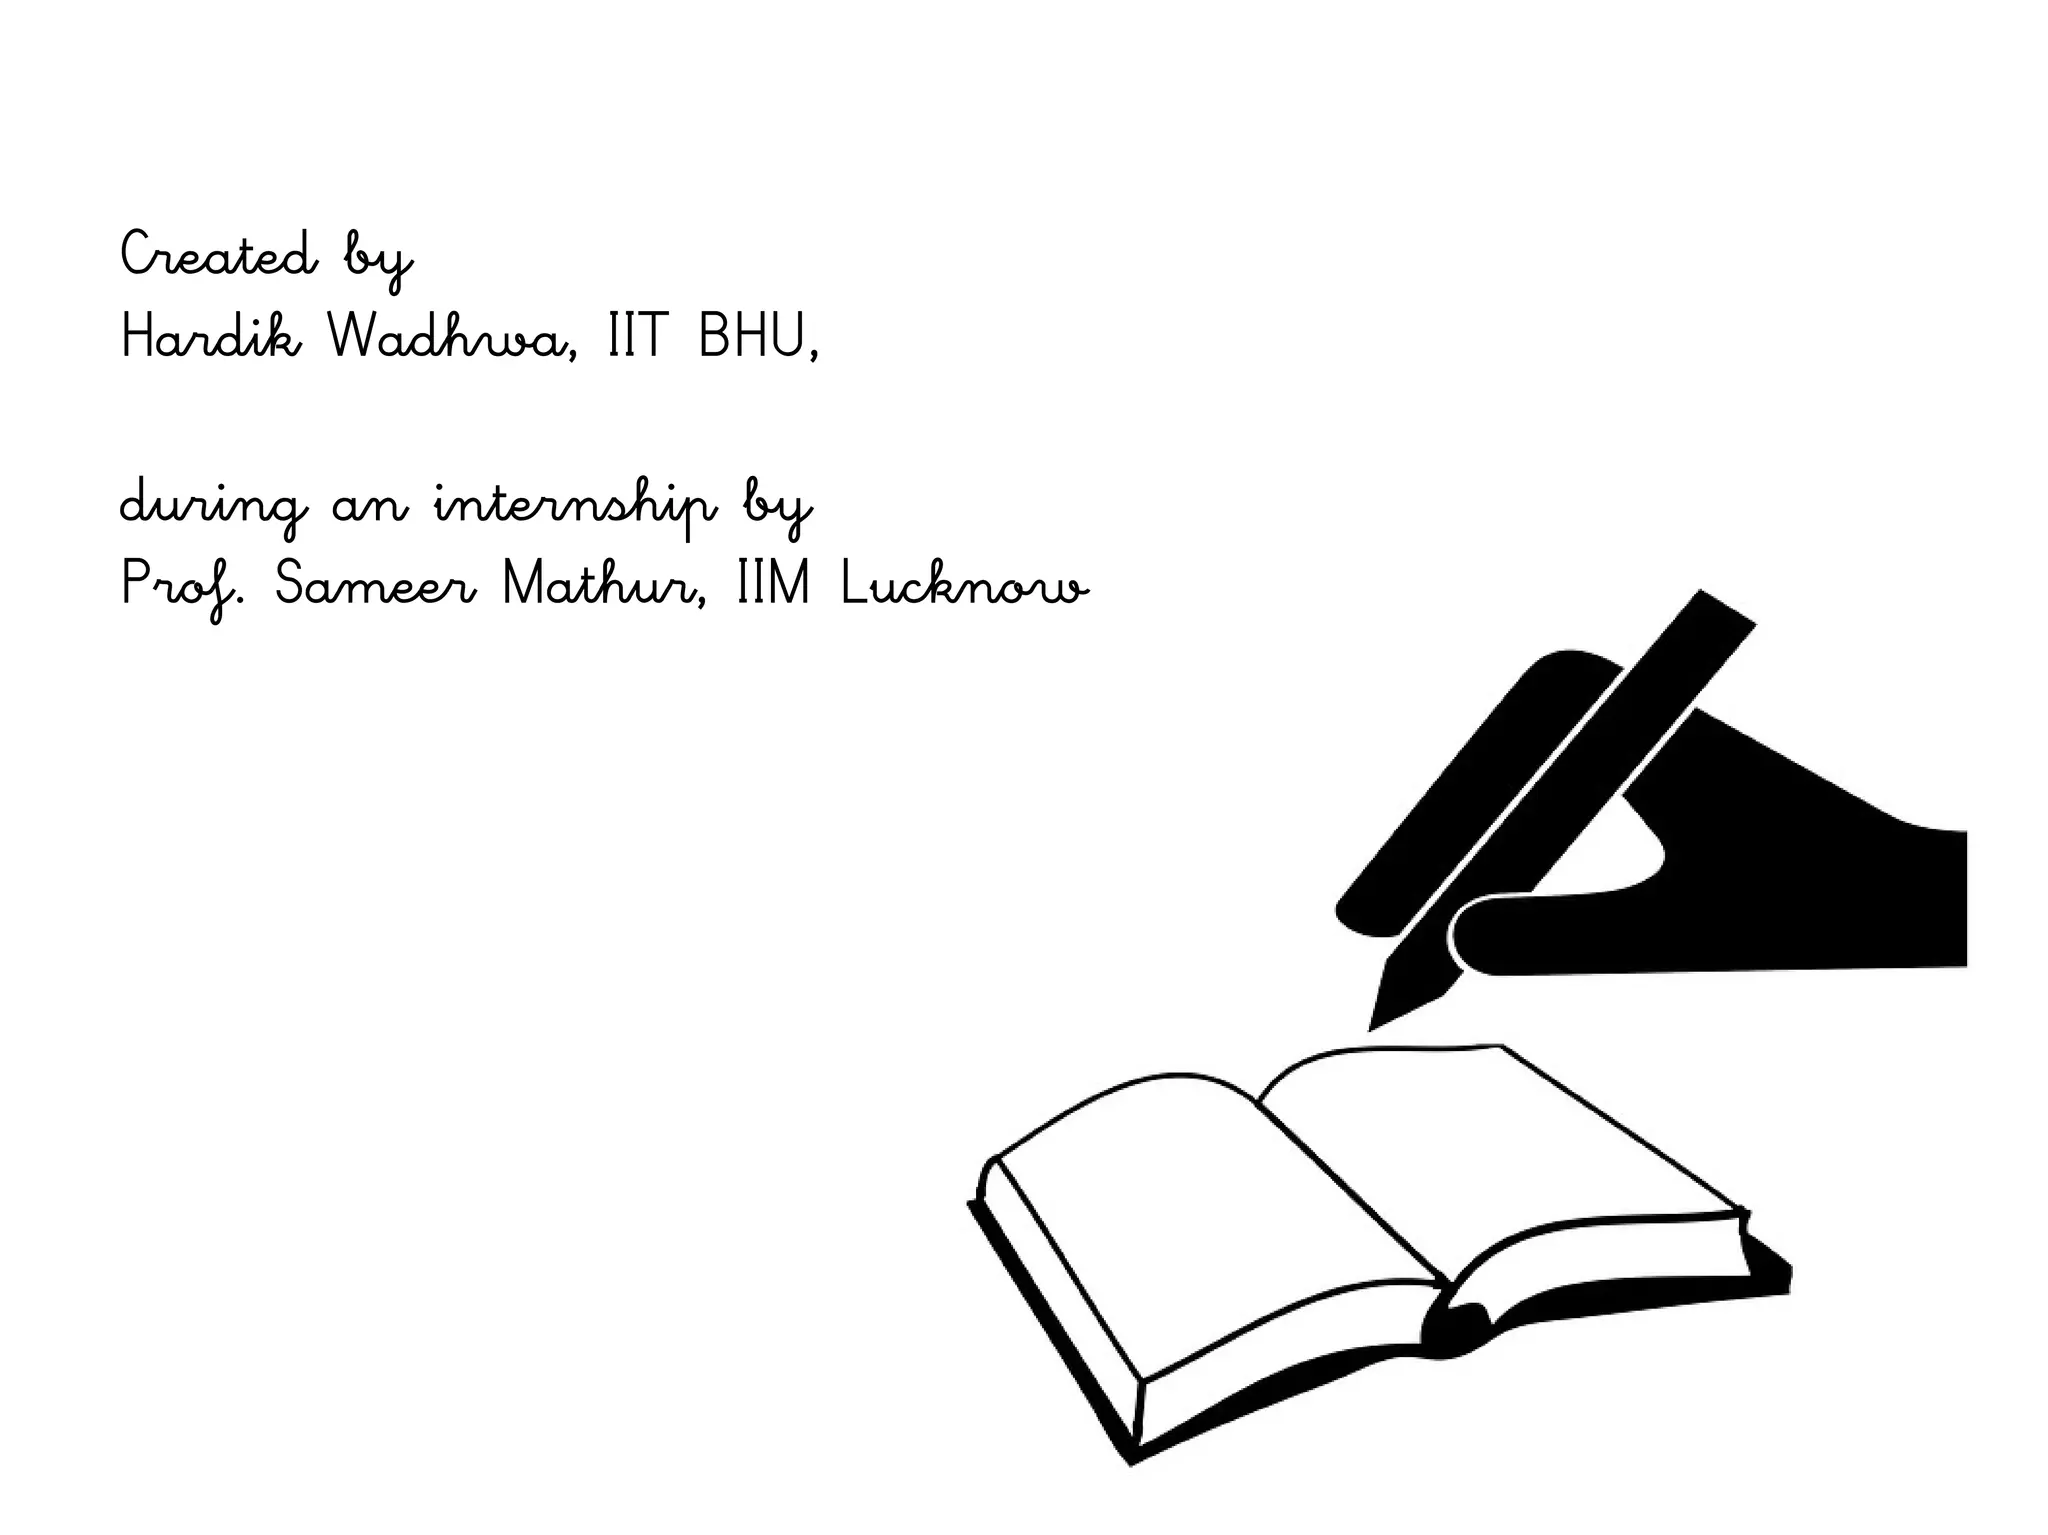 Created by
Hardik Wadhwa, IIT BHU,
during an internship by
Prof. Sameer Mathur, IIM Lucknow